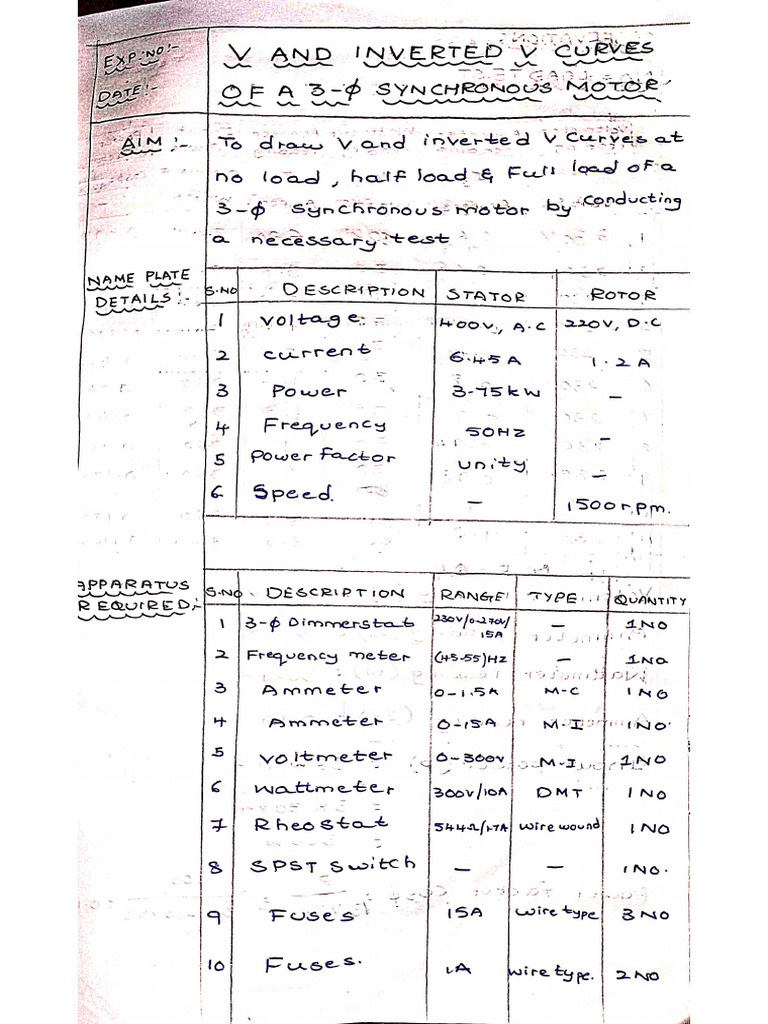 EXP:NO:-
DATE:-
V AND INVERTED V CURVES
OF A 3-ϕ SYNCHRONOUS MOTOR
AIM:-
To draw V and inverted V curves at
no load, half load & Full load of a
3-ϕ synchronous motor by conducting
a necessary test
NAME PLATE
DETAILS:-
S.NO DESCRIPTION STATOR ROTOR
1 Voltage 400V, A.C 220V, D.C
2 current 6.45A 1.2A
3 Power 3.75kW -
4 Frequency 50HZ -
5 Power factor unity -
6 Speed. - 1500r.pm.
APPARATUS
REQUIRED:-
S.NO DESCRIPTION RANGE TYPE QUANTITY
1 3-ϕ Dimmerstat 230V/0-270V/15A - 1NO
2 Frequency meter (45-55)HZ - 1NO
3 Ammeter 0-1.5A M-C 1NO
4 Ammeter 0-15A M-I 1NO.
5 Voltmeter 0-300V M-I 1NO
6 Wattmeter 300V/10A DMT 1NO
7 Rheostat 544Ω/1.7A wire wound 1NO
8 SPST Switch - - 1NO.
9 Fuses 15A wire type 3NO
10 Fuses. 1A wire type. 2NO